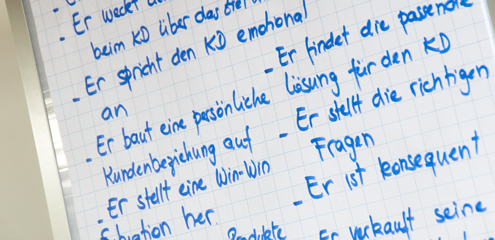 - Er weckt
beim KD über das
- Er spricht den KD emotional
an
- Er baut eine persönliche
Kundenbeziehung auf
- Er stellt eine Win-Win
Situation her
Produkte
- Er findet die passende
Lösung für den KD
- Er stellt die richtigen
Fragen
- Er ist konsequent
Er verkauft seine